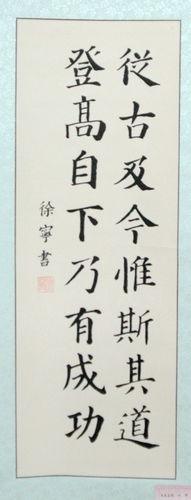 從古及今惟斯其道
登髙自下乃有成功
徐寧書